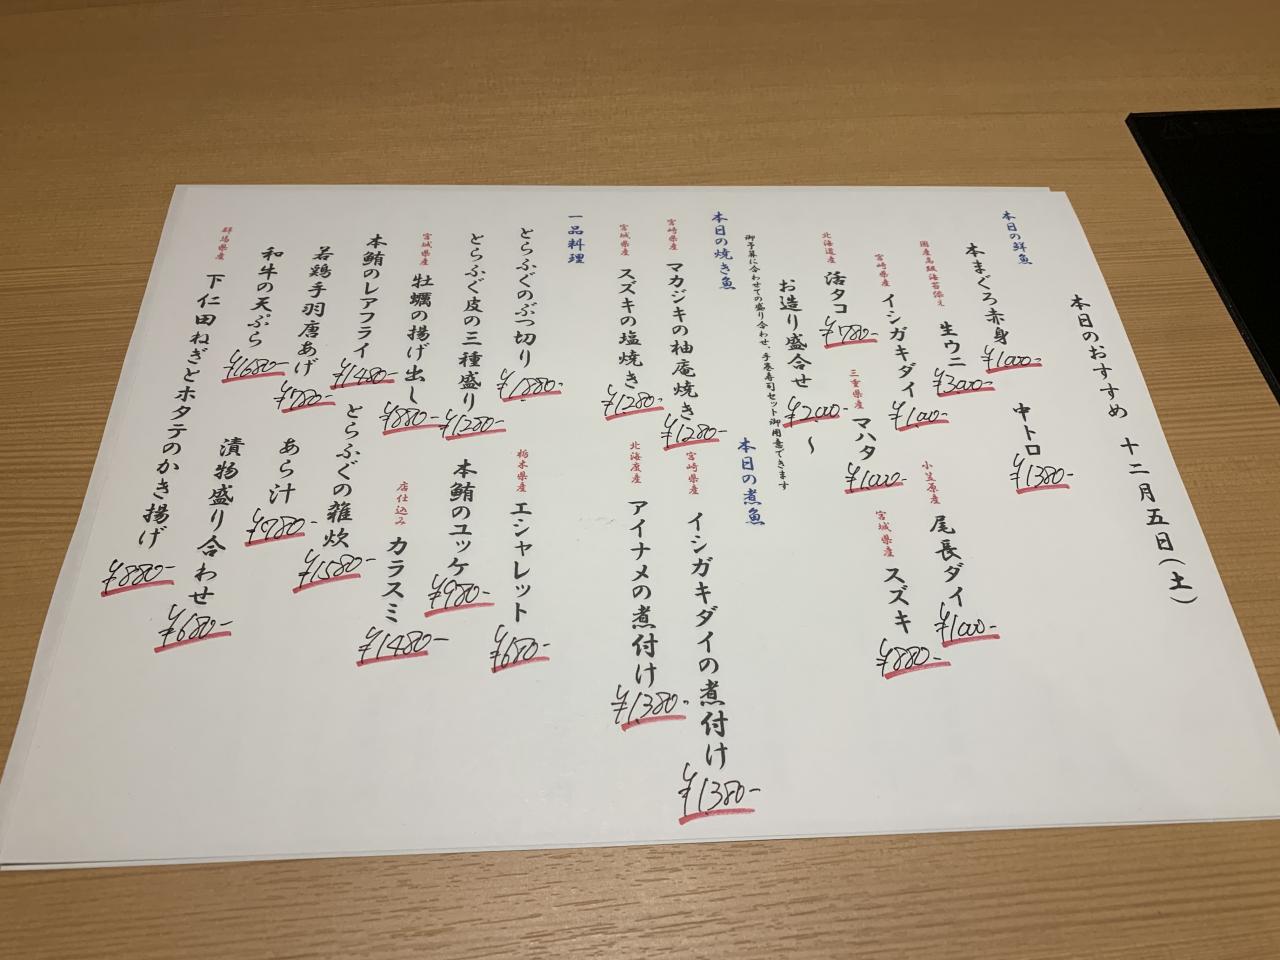 本日のおすすめ 十二月五日(土)
本日の鮮魚
本まぐろ赤身 ¥1000-
中トロ ¥1380-
国産高級海苔添え 生ウニ ¥3000-
宮崎県産 イシガキダイ ¥1,000-
小笠原産 尾長ダイ ¥1000-
北海道産 活タコ ¥780-
三重県産 マハタ ¥1000-
宮城県産 スズキ ¥880-
お造り盛合せ ¥2,000-～
御予算に合わせての盛り合わせ、手巻寿司セット御用意できます
本日の焼き魚
宮崎県産 マカジキの柚庵焼き ¥1280-
宮城県産 スズキの塩焼き ¥1280-
本日の煮魚
宮崎県産 イシガキダイの煮付け ¥1380-
北海度産 アイナメの煮付け ¥1,380-
一品料理
とらふぐのぶつ切り ¥1880-
とらふぐ皮の三種盛り ¥1280-
宮城県産 牡蠣の揚げ出し ¥880-
本鮪のレアフライ ¥1480-
若鶏手羽唐あげ ¥780-
和牛の天ぷら ¥1680-
群馬県産 下仁田ねぎとホタテのかき揚げ ¥880-
栃木県産 エシャレット ¥680-
本鮪のユッケ ¥980-
店仕込み カラスミ ¥1480-
とらふぐの雑炊 ¥1580-
あら汁 ¥980-
漬物盛り合わせ ¥680-